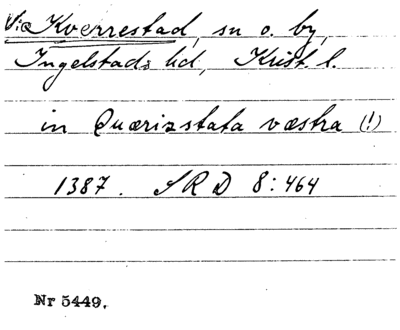 V:a Kverrestad, sn o. by,
Ingelstads hd, Krist. l.
in Quærizstata væstra (!)
1387. SRD 8:464
Nr 5449.